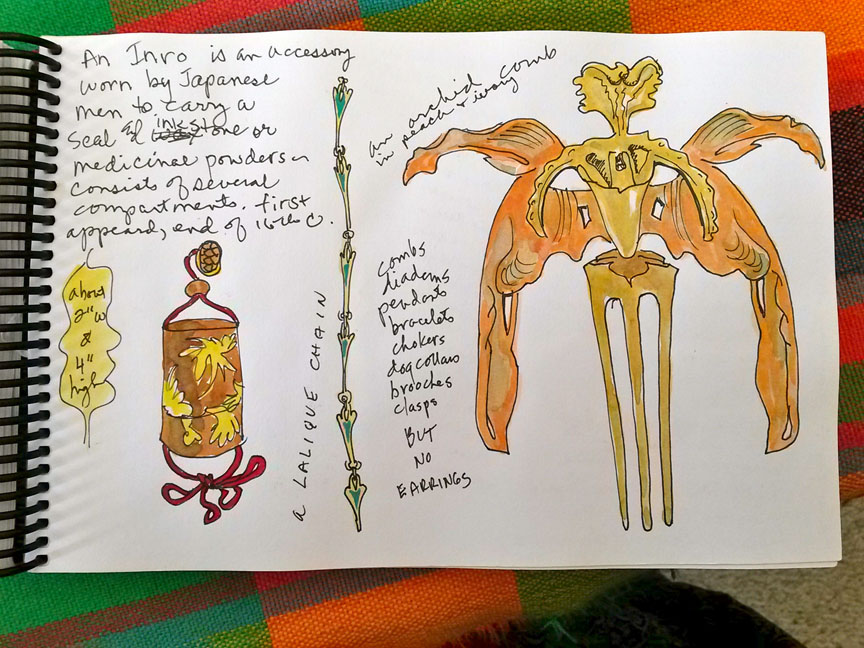 An Inro is an accessory
worn by Japanese
men to carry a
seal & inkstone or
medicinal powders
consists of several
compartments. first
appeard, end of 16th C.
about
2" w
&
4"
high
a LALIQUE CHAIN
an orchid comb
in peach & ivory
combs
diadems
pendants
bracelets
chokers
dog collars
brooches
clasps
BUT
NO
EARRINGS